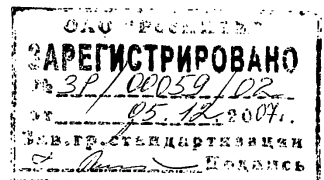 ОАО "РОСНИТЬ"
ЗАРЕГИСТРИРОВАНО
№ ЗР/00059/02
от 05.12.2007г.
Зав.гр.стандартизации
Подпись